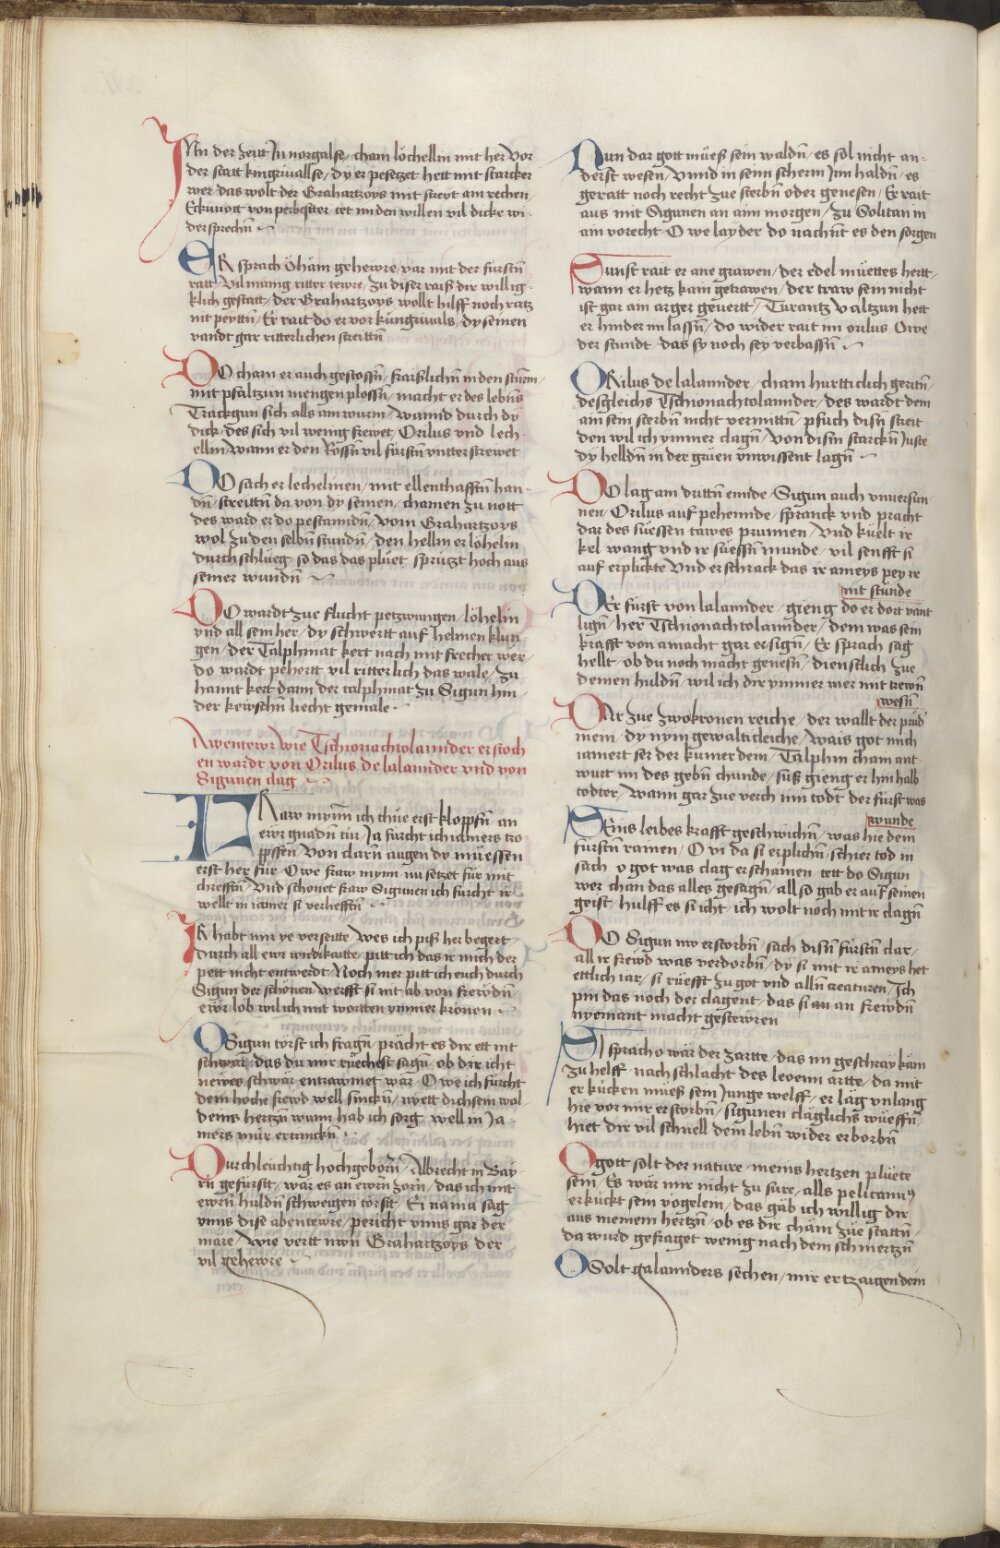 INn der zeitt In norgalse / cham löchellin mit her vor
der statt kingriuallse / dy er pesetzet hett mit starcker
wer / das wolt der Grahartzoys mit streyt am rechen /
Eckunott von perbester tet im den willen vil dicke wi-
dersprechñ
ER sprach öhäm gehewre / var mit der fürstñ
ratt / vil mänig ritter tewre / zu diser raiß dir willig-
klich gestatt / der Grahartzoys wollt hilff noch ratz
nit peyttñ / Er rait do er vor küngriuals / dy seinen
vandt gar ritterlichen streittñ
DO cham er auch gestossñ / fraislichñ in den sturm /
mit pfaltzun mengen plossñ / macht er des lebñs
Trackgun sich alls ain wurm / wannd durch dy
dick / des sich vil wenig frewet / Orilus vnd lech-
ellin / wann er den Rossñ vil fürstñ vntterstrewet
DO sach er lechelinen / mit ellenthafftñ han-
dñ / streittñ da von dy seinen / chamen zu nott
des ward er do pestanndñ / vom Grahartzoys
wol zu den selbñ stundñ / den hellm er löhelin
durchschlüeg / so das das plüet / sprützt hoch aus
seiner wundñ
DO wardt zue flucht petzwungen / löhelin
vnd all sein her / dy schwertt auf helmen klun-
gen / der Talphinat kert nach mit frecher wer /
do wardt pehertt vil ritterlich das wale / zu
hannt kert dann der talphinat zu Sigun hin /
der kewschñ liecht gemale
Awentewr wie Tschionachtolannder erstoch
en wardt von Orilus de lalannder vnd von
Sigunen clag
FRaw mynñ ich thüe erst kloppfñ an
ewr gnadñ tür / Ja fürcht ich iamers tro
pffen / von darñ augen dy müessen
erst her für / O we fraw mynn nu setzet für mit
chrefftñ / Vnd schonet fraw Sigunen ich fürcht ir
wellt in iamer si verhefftñ
IR habt mir ye verseitte / wes ich piß her begert
durch all ewr wirdikaitte / pitt ich das ir mich der
pett nicht entwerdt / Noch mer pitt ich euch durch
Sigun der schönen / werfft si nit ab von frewdñ
ewr lob wil ich mit wortten ymmer krönen
O Sigun törst ich fragñ / prächt es dir ett nit
schwar / das du mir ruechest sagñ / ob dir icht
newes schwar entrawmet wär / O we ich fürcht
dein hoche frewd well sinckñ / nyett dich sein wol
deins hertzñ wunn hab ich sorg / well in Ja-
mers mür ertrinckñ
Durchleuchtig hochgeborñ / Albrecht in Bay-
ern gefürstt / wär es an ewrñ zorñ / das ich mit
ewrñ huldñ schweigen törstt / Ei na in a sag
vnns dise abentewre / pericht vnns gar der
märe / wie vertt nwn Grahartzoys der
vil gehewre
Nun dar gott müeß sein waldñ / es sol nicht an-
derst wesen / vnnd in senn scherm Jnn haldñ / es
geratt noch recht zue sterbñ oder genesen / Er rait
aus mit Sigunen an ain morgen / zu Solitan in
am vorecht / O we layder do nachnt es den sorgen
Sunst rait er ane grawen / der edel müettes hertt
wann er hetz kain getrawen / der traw sein nicht
ist gar am arger geuertt / Turantz valtzun hett
er hinder im lassñ / do wider rait im orilus Owe
der stundt / das sy noch sey verbassñ
ORilus de lalannder / cham hurtticlich geritñ /
desgleichs Tschionachtolannder / des wardt dem
ain sein sterbñ nicht vermittñ / pfuch disñ streit
den wil ich ymmer clagñ / von disñ starckñ Juste
dy helldñ in der grüen vnwissent lagñ
DO lag am drittñ ennde / Sigun auch vnuersun
nen / Orilus auf pehennde / spranck vnd pracht
dar des süessen tawes prunnen / vnd kuelt ir
kel wang vnd ir süessñ munde / vil sensfft si
auf erplickte vnd erschrack das ir ameys pey ir
nit stunde
DEr fürst von lalannder / gieng do er dort vant
lign̄ / her Tschionachtolannder / dem was sein
krafft von amacht gar ersigñ / Er sprach sag
hellt / ob du noch macht genesñ / dienstlich zue
deinen huldñ / wil ich dir ymmer mer mit trewñ
wesñ
DAr zue zwo kronen reiche / der wallt der prüd
mein / dy nym gewalticleiche / wais got mich
iamert ser der kumer dein / Talphin cham ant
wurt im des gebñ chunde / süß gieng er hin halb
todter / wann gar zue verch im todt der fürst was
wunde
SEins leibes krafft geschwichñ / was hie dem
fürstñ ramen / O vi da si erplichñ / schier tod in
sach / o got was clag erschainen tett do Sigun
wer chan das alles gesagñ / all so gab er auf seinen
geist / hulff es si icht / ich wolt noch mit ir clagñ
DO Sigun nw erstorbñ / sach disñ fürstñ clar /
all ir frewd was verdorbñ / dy si mit ir ameys het
ettlich iar / si rüefft zu got vnd allñ creaturen / Ich
pin das noch der clagent / das si an an frewdñ
nyemant macht gestewren
SI sprach o wär der zartte / das im geschray käm
zu helff / nach schlacht des leoenn artte / da mit
er kücken müeß sein Junge welff / er läg vnlang
hie vor mir erstorbñ / sigunen cläglichs wüeffñ
hiet dir vil schnell dein lebñ wider erborbñ
O gott solt der nature / meins hertzen plüete
sein / Es wär mir nicht zu sure / alls pelicanus
erkückt sein vogelein / das gäb ich willig dir
aus meinem hertzñ / ob es dir chäm züe stattñ /
da wurd gefraget wenig nach dem schmertzñ
O Solt galannders sechen / mir ertzaigen dein